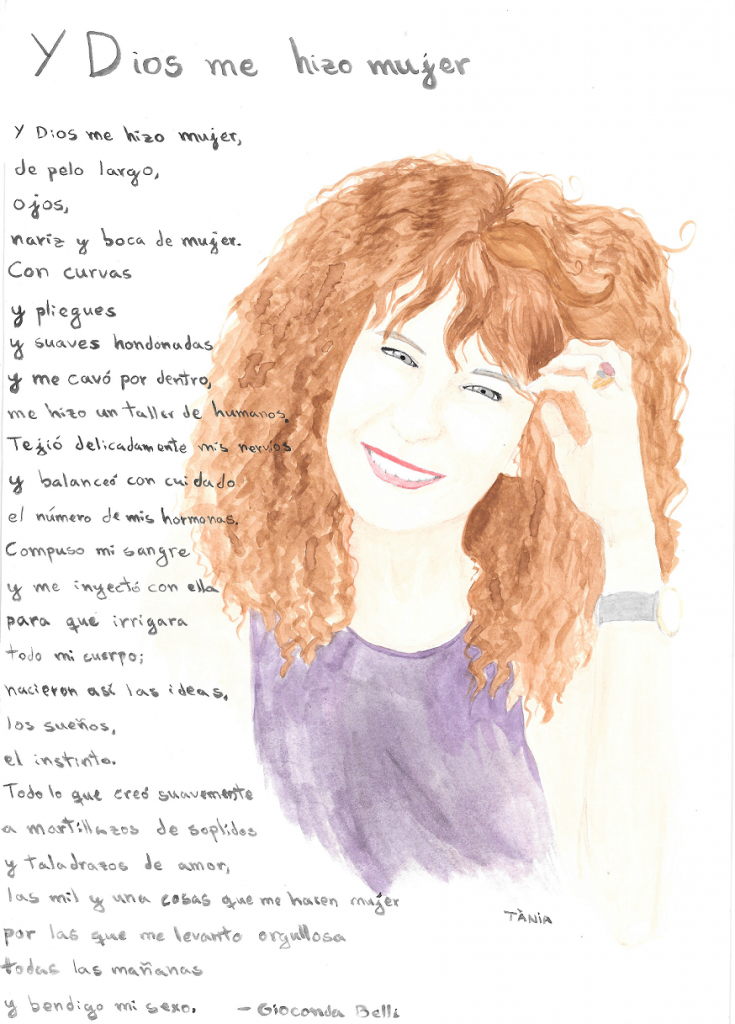 Y Dios me hizo mujer
Y Dios me hizo mujer,
de pelo largo,
ojos,
nariz y boca de mujer.
Con curvas
y pliegues
y suaves hondonadas
y me cavó por dentro,
me hizo un taller de humanos.
Tejió delicadamente mis nervios
y balanceó con cuidado
el número de mis hormonas.
Compuso mi sangre
y me inyectó con ella
para que irrigara
todo mi cuerpo;
nacieron así las ideas,
los sueños,
el instinto.
Todo lo que creó suavemente
a martillazos de soplidos
y taladrazos de amor,
las mil y una cosas que me hacen mujer
por las que me levanto orgullosa
todas las mañanas
y bendigo mi sexo. - Gioconda Belli
TÀNIA